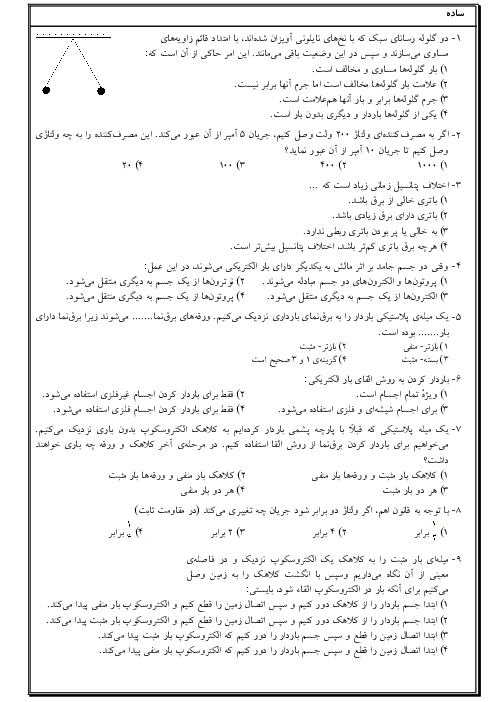 ساده
۱- دو گلوله رسانای سبک که با نخ‌های نایلونی آویزان شده‌اند، با امتداد قائم زاویه‌های
مساوی می‌سازند و سپس در این وضعیت باقی می‌مانند. این امر حاکی از آن است که:
۱) بار گلوله‌ها مساوی و مخالف است.
۲) علامت بار گلوله‌ها مخالف است اما جرم آنها برابر نیست.
۳) جرم گلوله‌ها برابر و بار آنها هم‌علامت است.
۴) یکی از گلوله‌ها باردار و دیگری بدون بار است.
۲- اگر به مصرف‌کننده‌ای ولتاژ ۲۰۰ ولت وصل کنیم، جریان ۵ آمپر از آن عبور می‌کند. این مصرف‌کننده را به چه ولتاژی
وصل کنیم تا جریان ۱۰ آمپر از آن عبور نماید؟
۱) ۱۰۰۰ ۲) ۴۰۰ ۳) ۱۰۰ ۴) ۲۰
۳- اختلاف پتانسیل زمانی زیاد است که ...
۱) باتری خالی از برق باشد.
۲) باتری دارای برق زیادی باشد.
۳) به خالی یا پر بودن باتری ربطی ندارد.
۴) هرچه برق باتری کم‌تر باشد، اختلاف پتانسیل بیش‌تر است.
۴- وقتی دو جسم جامد بر اثر مالش به یکدیگر دارای بار الکتریکی می‌شوند، در این عمل:
۱) پروتون‌ها و الکترون‌های دو جسم مبادله می‌شوند. ۲) نوترون‌ها از یک جسم به دیگری منتقل می‌شود.
۳) الکترون‌ها از یک جسم به دیگری منتقل می‌شود. ۴) پروتون‌ها از یک جسم به دیگری منتقل می‌شود.
۵- یک میله‌ی پلاستیکی باردار را به برق‌نمای بارداری نزدیک می‌کنیم. ورقه‌های برق‌نما....... می‌شوند زیرا برق‌نما دارای
بار....... بوده است.
۱) بازتر- منفی ۲) بازتر- مثبت
۳) بسته- مثبت ۴) گزینه‌ی ۱ و ۳ صحیح است
۶- باردار کردن به روش القای بار الکتریکی:
۱) ویژهٔ تمام اجسام است. ۲) فقط برای باردار کردن اجسام غیرفلزی استفاده می‌شود.
۳) برای اجسام شیشه‌ای و فلزی استفاده می‌شود. ۴) فقط برای باردار کردن اجسام فلزی استفاده می‌شود.
۷- یک میله پلاستیکی که قبلاً با پارچه پشمی باردار کرده‌ایم به کلاهک الکتروسکوپ بدون باری نزدیک می‌کنیم.
می‌خواهیم برای باردار کردن برق‌نما از روش القا استفاده کنیم. در مرحله‌ی آخر کلاهک و ورقه چه باری خواهند
داشت؟
۱) کلاهک بار مثبت و ورقه‌ها بار منفی ۲) کلاهک بار منفی و ورقه‌ها بار مثبت
۳) هر دو بار مثبت ۴) هر دو بار منفی
۸- با توجه به قانون اهم، اگر ولتاژ دو برابر شود جریان چه تغییری می‌کند (در مقاومت ثابت)
۱) برابر ۲) ۴ برابر ۳) ۲ برابر ۴) برابر
۹- میله‌ای بار مثبت را به کلاهک یک الکتروسکوپ نزدیک و در فاصله‌ی
معینی از آن نگاه می‌داریم وسپس با انگشت کلاهک را به زمین وصل
می‌کنیم برای آنکه بار در الکتروسکوپ القاء شود، بایستی:
۱) ابتدا جسم باردار را از کلاهک دور کنیم و سپس اتصال زمین را قطع کنیم و الکتروسکوپ بار منفی پیدا می‌کند.
۲) ابتدا جسم باردار را از کلاهک دور کنیم و سپس اتصال زمین را قطع کنیم و الکتروسکوپ بار مثبت پیدا می‌کند.
۳) ابتدا اتصال زمین را قطع و سپس جسم باردار را دور کنیم که الکتروسکوپ بار مثبت پیدا می‌کند.
۴) ابتدا اتصال زمین را قطع و سپس جسم باردار را دور کنیم که الکتروسکوپ بار منفی پیدا می‌کند.